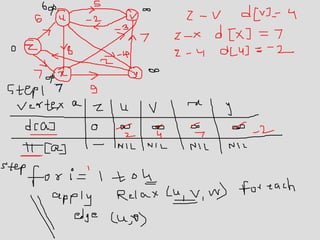 6 ∞ u 5 v ∞
-2
-3
z - v d[v] = 4
0 z 8 7
z - x d[x] = 7
-4
2
z - 4 d[u] = -2
7 ∞ x 9 y ∞
Step 1 7
Vertex a z u v x y
d[a] 0 ∞ ∞ ∞ ∞ -2
2 4 7
π[a] - NIL NIL NIL NIL
Step for i = 1 to 4
apply Relax (u, v, w) for each
edge (u, v)